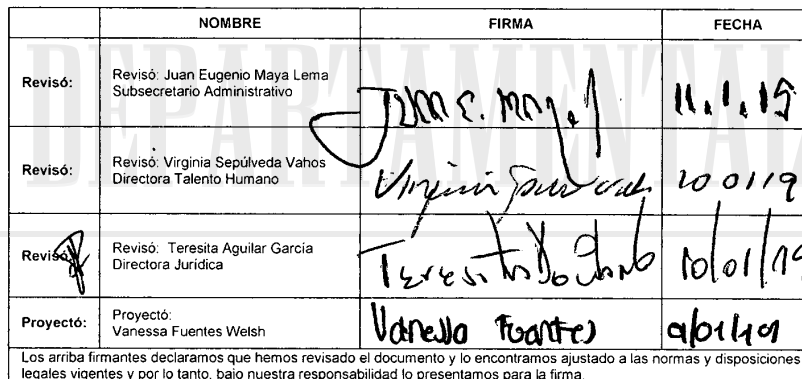 NOMBRE FIRMA FECHA
Revisó: Revisó: Juan Eugenio Maya Lema
Subsecretario Administrativo
Juan E. Maya L 11.1.19
Revisó: Revisó: Virginia Sepúlveda Vahos
Directora Talento Humano
Virginia Sepúlveda 10 01/19
Revisó: Revisó: Teresita Aguilar García
Directora Jurídica
Teresita 10/01/19
Proyectó: Proyectó:
Vanessa Fuentes Welsh
Vanessa Fuentes
Los arriba firmantes declaramos que hemos revisado el documento y lo encontramos ajustado a las normas y disposiciones
legales vigentes y por lo tanto, bajo nuestra responsabilidad lo presentamos para la firma.
DEPARTAMENTAL